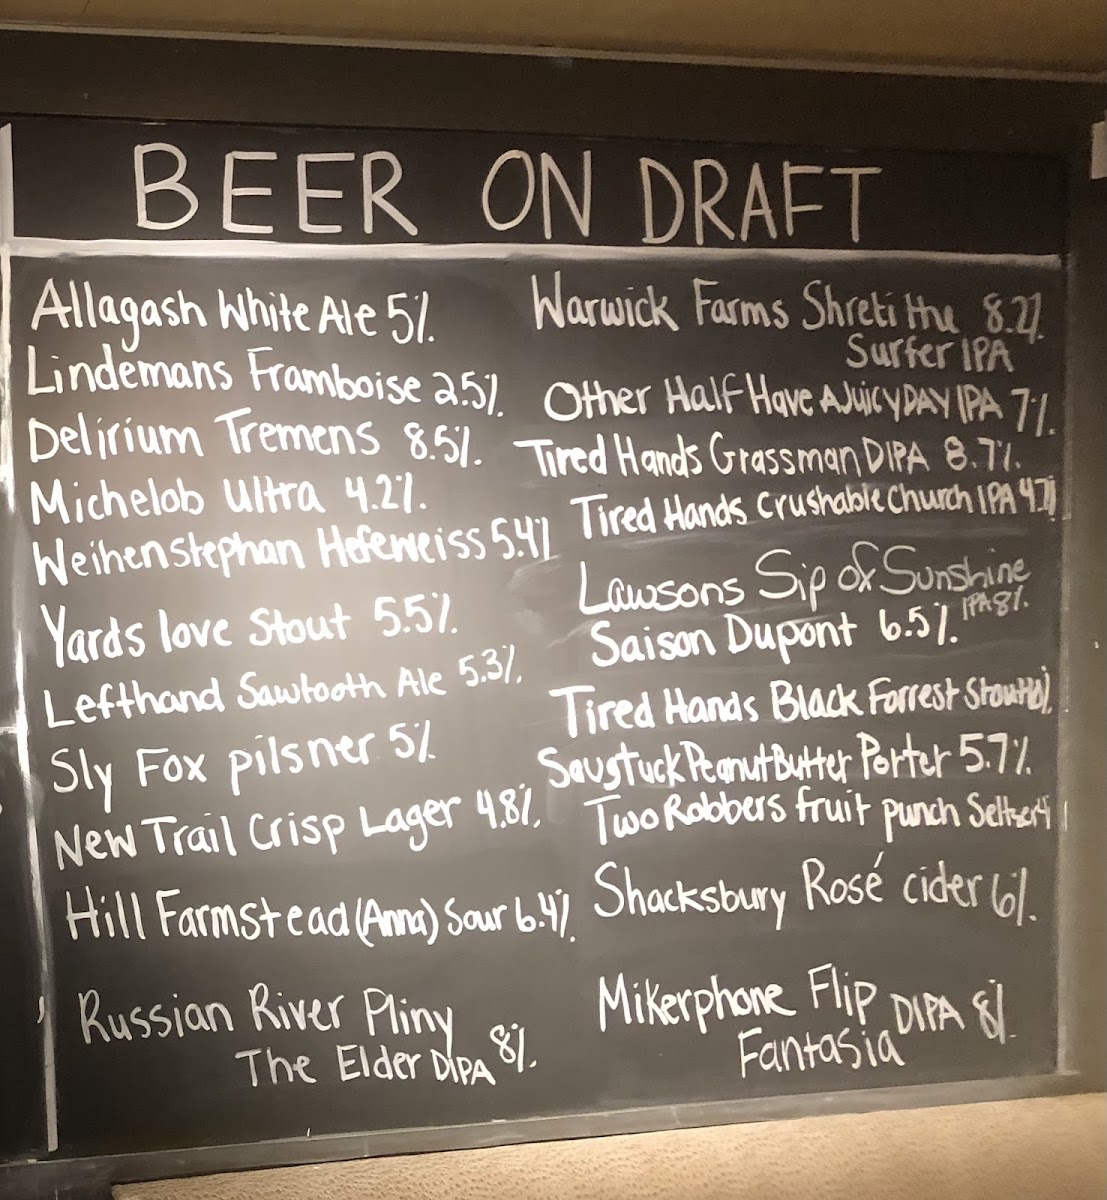 BEER ON DRAFT
Allagash White Ale 5%.
Lindemans Framboise 2.5%.
Delirium Tremens 8.5%.
Michelob Ultra 4.2%.
Weihenstephan Hefeweiss 5.4%
Yards love Stout 5.5%.
Lefthand Sawtooth Ale 5.3%.
Sly Fox pilsner 5%
New Trail Crisp Lager 4.8%.
Hill Farmstead (Anna) Sour 6.4%.
Russian River Pliny
The Elder DIPA 8%.
Warwick Farms Shreti the 8.2%.
Surfer IPA
Other Half Have A JUICY DAY IPA 7%.
Tired Hands Grassman DIPA 8.7%.
Tired Hands Crushable Church IPA 4.7%
Lawsons Sip of Sunshine
IPA 8%.
Saison Dupont 6.5%.
Tired Hands Black Forrest Stout
Saugtuck Peanut Butter Porter 5.7%.
Two Robbers fruit punch Seltzer
Shacksbury Rosé cider 6%.
Mikerphone Flip DIPA 8%.
Fantasia